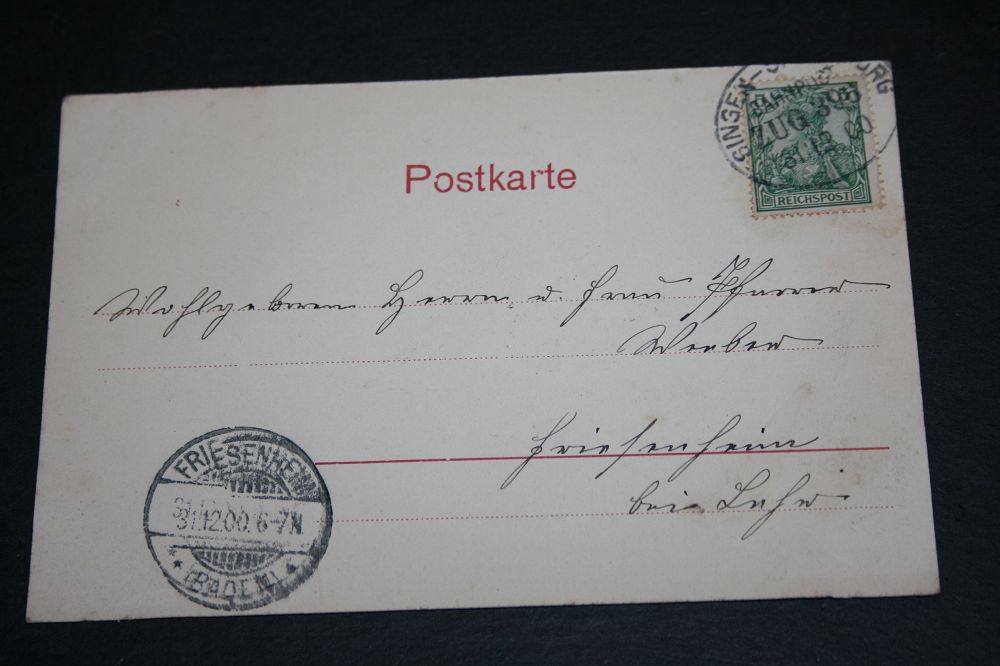 SINGEN-O BURG
BAHNPOST
ZUG
31.12 00
REICHSPOST
Postkarte
Wohlgeboren Herrn u. Frau Pfarrer
Friesenheim
bei Lahr
FRIESENHEIM
31.12.00.6-7N
* (BADEN) *